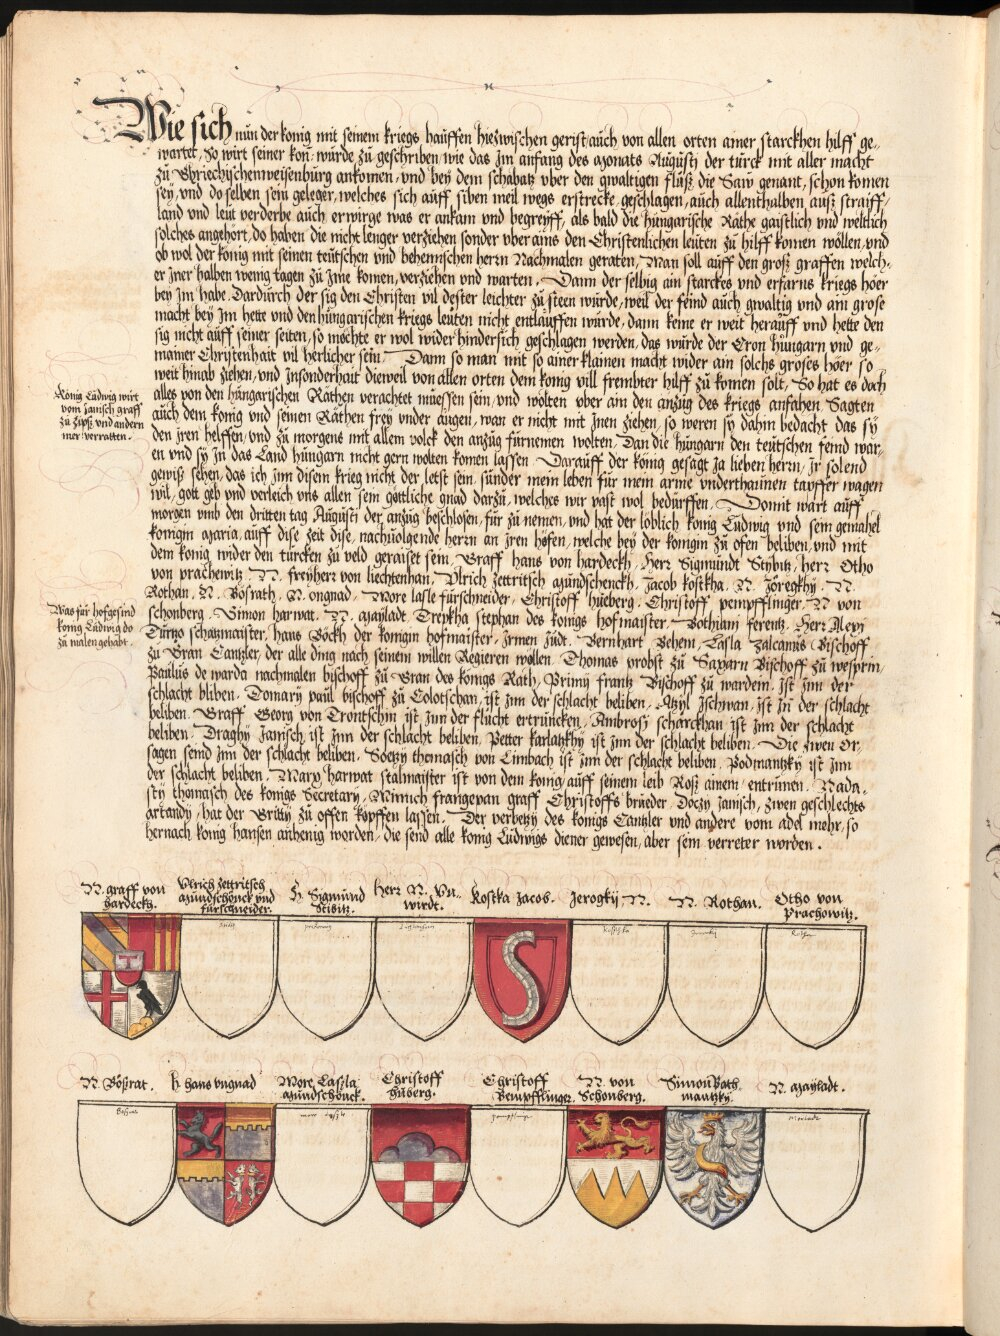 Wie sich nun der konig mit seinem kriegs hauffen hiezwischen gerist auch von allen orten ainer starckhen hilff ge-
wartet, So wirt seiner kon: wurde zu geschriben wie das Im anfang des Monats Augusti der türck mit aller macht
zu Ghriechischenweisenburg ankomen, vnd bey dem schabatz vber den gwaltigen fluss, die Saw genant, schon komen
sey, vnd do selben sein geleger, welches sich auff siben meil wegs erstrecke, geschlagen, auch allenthalben auss straiff,
land vnd leut verderbe auch erwirge was er ankam vnd begreyff, als bald die hungarische Räthe gaistlich vnd weltlich
solches angehört, do haben die nicht lenger verziehen sonder vberains den Christenlichen leuten zu hilff komen wöllen, vnd
ob wol der könig mit seinen teutschen vnd behemischen herrn Nachmalen geraten, Man soll auff den gross graffen welch-
er Jner halben wenig tagen zu Jme komen, verziehen vnd warten. Dann der selbig ain starckes vnd erfarns kriegs höer
bey jm habe, Dardurch der sig den Christen vil dester leichter zu steen wurde, weil der feind auch gwaltig vnd ain grose
macht bey Jm hette vnd den hungarischen kriegs leuten nicht entlauffen wurde, dann keme er weit herauff vnd hette den
sig nicht auff seiner seiten, so möchte er wol wider hindersich geschlagen werden, das wurde der Cron hungarn vnd ge-
mainer Christenhait vil herlicher sein. Dann so man mit so ainer klainen macht wider ain solchs groses höer so
weit hinab ziehen, vnd Jnsonderhait dieweil von allen orten dem konig vill frembter hilff zu komen solt, So hat es doch
König Ludwig wirt
vom Janisch graff
zu Zips vnd andern
mer verratten.
alles von den hungarischen Räthen verachtet müessen sein, vnd wolten vber ain den anzug des kriegs anfahen, Sagten
auch dem konig vnd seinen Räthen frey vnder augen, wan er nicht mit Jnen ziehen, so weren sy dahin bedacht das sy
den jren helffen, vnd zu morgens mit allem volck den anzug fürnemen wolten, Dan die hungarn den teutschen feind war-
en vnd sy in das Land hungarn nicht gern wolten komen lassen. Darauff der konig gesagt Ja lieben herrn, jr solend
gewiss sehen, das ich jnn disem krieg nicht der letst sein, sunder mein leben für mein arme vnderthannen tapffer wagen
wil, gott geb vnd verleich vns allen sein göttliche gnad darzu, welches wir vast wol bedürffen. Domit wart auff
morgen vmb den dritten tag Augusti der anzug beschlosen, für zu nemen, vnd hat der löblich konig Ludwig vnd sein gemahel
konigin Maria, auff dise zeit dise, nachuolgende herrn an jren höfen, welche bey der konigin zu ofen beliben, vnd mit
dem konig wider den türcken zu veld geraiset sein. Graff hans von hardeckh, Herr Sigmundt Stybitz, herr Otho
von prachewitz, N. freyherr von liechtenhan, Vlrich zettritsch Mundschenckh, Jacob kostkha, N. Jöregkhy, N.
Was für hofgesind
konig Ludwig do
zu malen gehabt.
Rothan, N. Bösrath, N. ongnad, More lasle fürschneider, Christoff hueberg, Christoff pempfflinger, N von
schonberg, Simon harwat, N. Mayladt, Trepkha stephan des konigs hofmaister, Bothiani ferentz, Herr Alexi
Turtzo schatzmaister, hans Böckh der konigin hofmaister, Irmen Jüdt, Bernhart Behem, Lasla zalcanus Bischoff
zu Gran Cantzler, der alle ding nach seinem willen Regieren wöllen, Thomas probst zu Saxarn Bischoff zu wesprin,
Paulus de warda nachmalen bischoff zu Gran des konigs Rath, Priny frantz Bischoff zu wardein, ist jnn der
schlacht bliben, Tomary paul bischoff zu Colotschan, ist jnn der schlacht beliben, Atzyl Jschwan, ist jn der schlacht
beliben, Graff Georg von Trontschin ist jnn der flucht ertruncken, Ambrosy scharckhan ist jnn der schlacht
beliben, Draghy Janisch, ist jnn der schlacht beliben, Petter karlatzkhy ist jnn der schlacht beliben, Die zwen Or-
sagen seind jnn der schlacht beliben, Soetzy thomasch von Limbach ist jnn der schlacht beliben, Podmantzky ist jnn
der schlacht beliben, Marx harwat stalmaister ist von dem konig, auff seinem leib Ross ainem, entrunen, Nada-
sty thomasch des konigs Secretary, Minnich frangepan graff Christoffs brueder, Doczy Janisch, zwen geschlechts
artandy, hat der Gritty zu offen köpffen lassen, Der verbetzy des konigs Cantzler vnd andere vom adel mehr, so
hernach konig hansen anhenig worden, die send alle konig Ludwigs diener gewesen, aber sein verreter worden.
N. graff von
hardeckh.
Vlrich zettritsch
Mundschenck vnd
fürschneider.
H. Sigmund
Stibitz.
Herr N. Vn-
wirdt.
Kostka Jacob.
Jerogky N.
N. Rothan.
Otho von
Prachowitz.
N. Bössrat.
H. hans vngnad
More Lassla
Mundschenck.
Christoff
Huberg.
Christoff
Bempfflinger.
N. von
Schönberg.
Simon Bath
mantzky.
N. Mayladt.